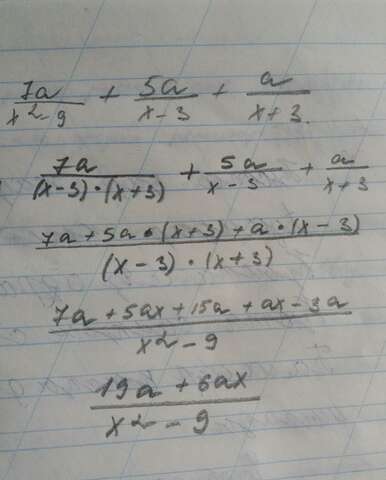 7a/(x²-9) + 5a/(x-3) + a/(x+3).
7a/((x-3)·(x+3)) + 5a/(x-3) + a/(x+3)
(7a+5a·(x+3)+a·(x-3))/((x-3)·(x+3))
(7a+5ax+15a+ax-3a)/(x²-9)
(19a+6ax)/(x²-9)